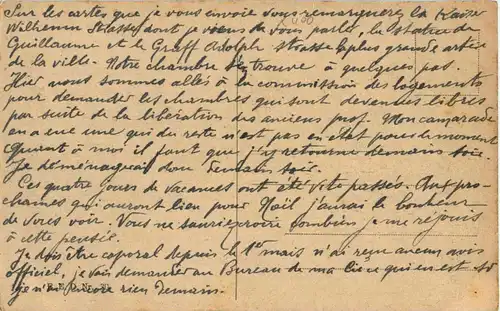 Sur les cartes que je vous envoie vous remarquerez la Kaiser
Wilhelm Strasse dont je viens de vous parler, la statue de
Guillaume et le Graff Adolph strasse la plus grande artère
de la ville. Notre chambre se trouve à quelques pas.
Hier nous sommes allés à la commission des logements
pour demander les chambres qui sont devenues libres
par suite de la libération des anciens prof. Mon camarade
en a eue une qui du reste n'est pas en état pour le moment
Quant à moi il faut que j'y retourne demain soir.
Je déménagerai donc demain soir.
Ces quatre jours de vacances ont été vite passés. Aux pro-
chaines qui auront lieu pour Noël j'aurai le bonheur
de vous voir. Vous ne sauriez croire combien je me réjouis
à cette pensée.
Je dois être caporal depuis le 1er mais n'ai reçu aucun avis
officiel, je vais demander au Bureau de ma Cie ce qui en est si
je n'ai encore rien demain.